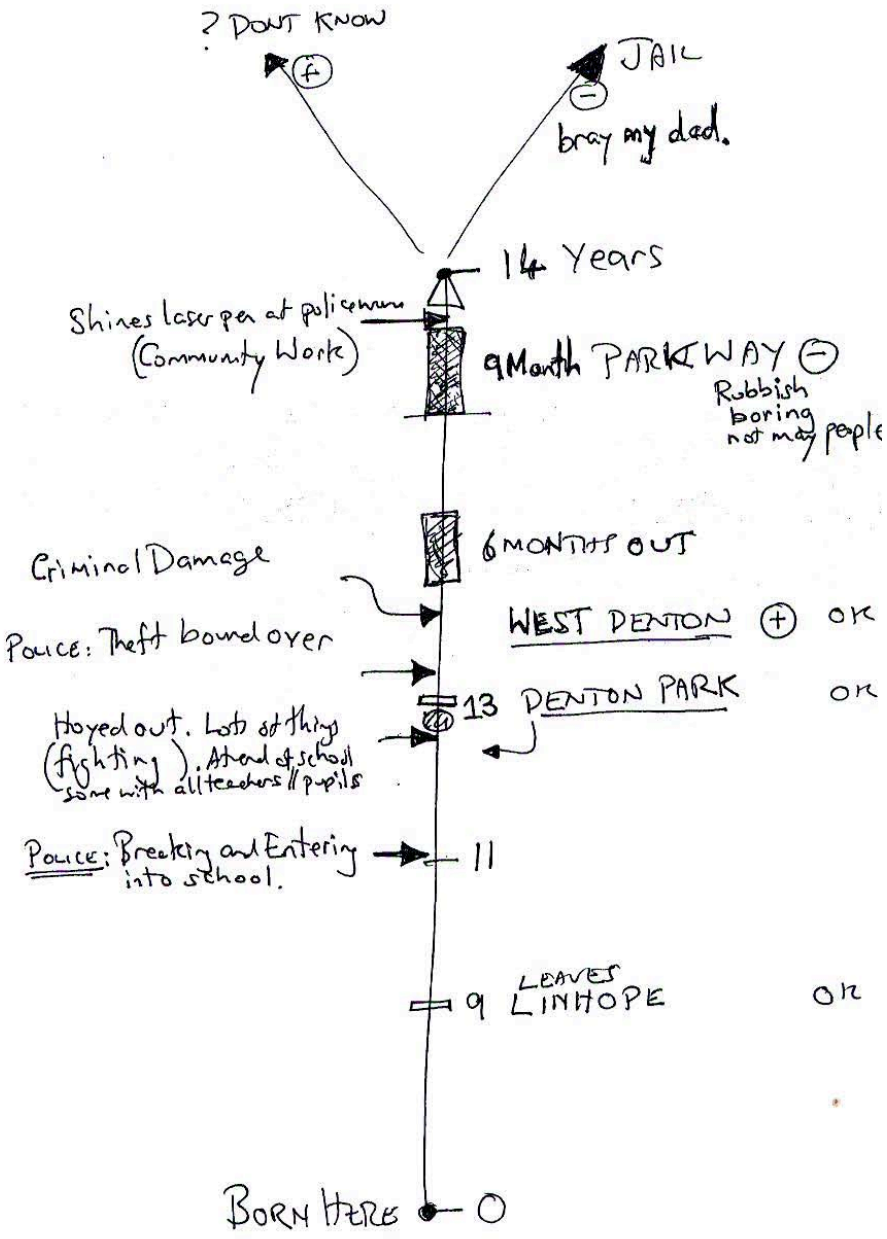 ? DONT KNOW
+
JAIL
−
bray my dad.
14 Years
Shines laser pen at
(Community Work)
9 Month PARKWAY −
Rubbish
boring
not may people
6 MONTHS OUT
Criminal Damage
WEST DENTON + OK
POLICE: Theft bound over
13 DENTON PARK OK
Hoyed out. Lots of thing
(fighting). Ahead of school
some with all teachers // pupils
POLICE: Breaking and Entering
into school.
11
LEAVES
9 LINHOPE OK
BORN HERE 0